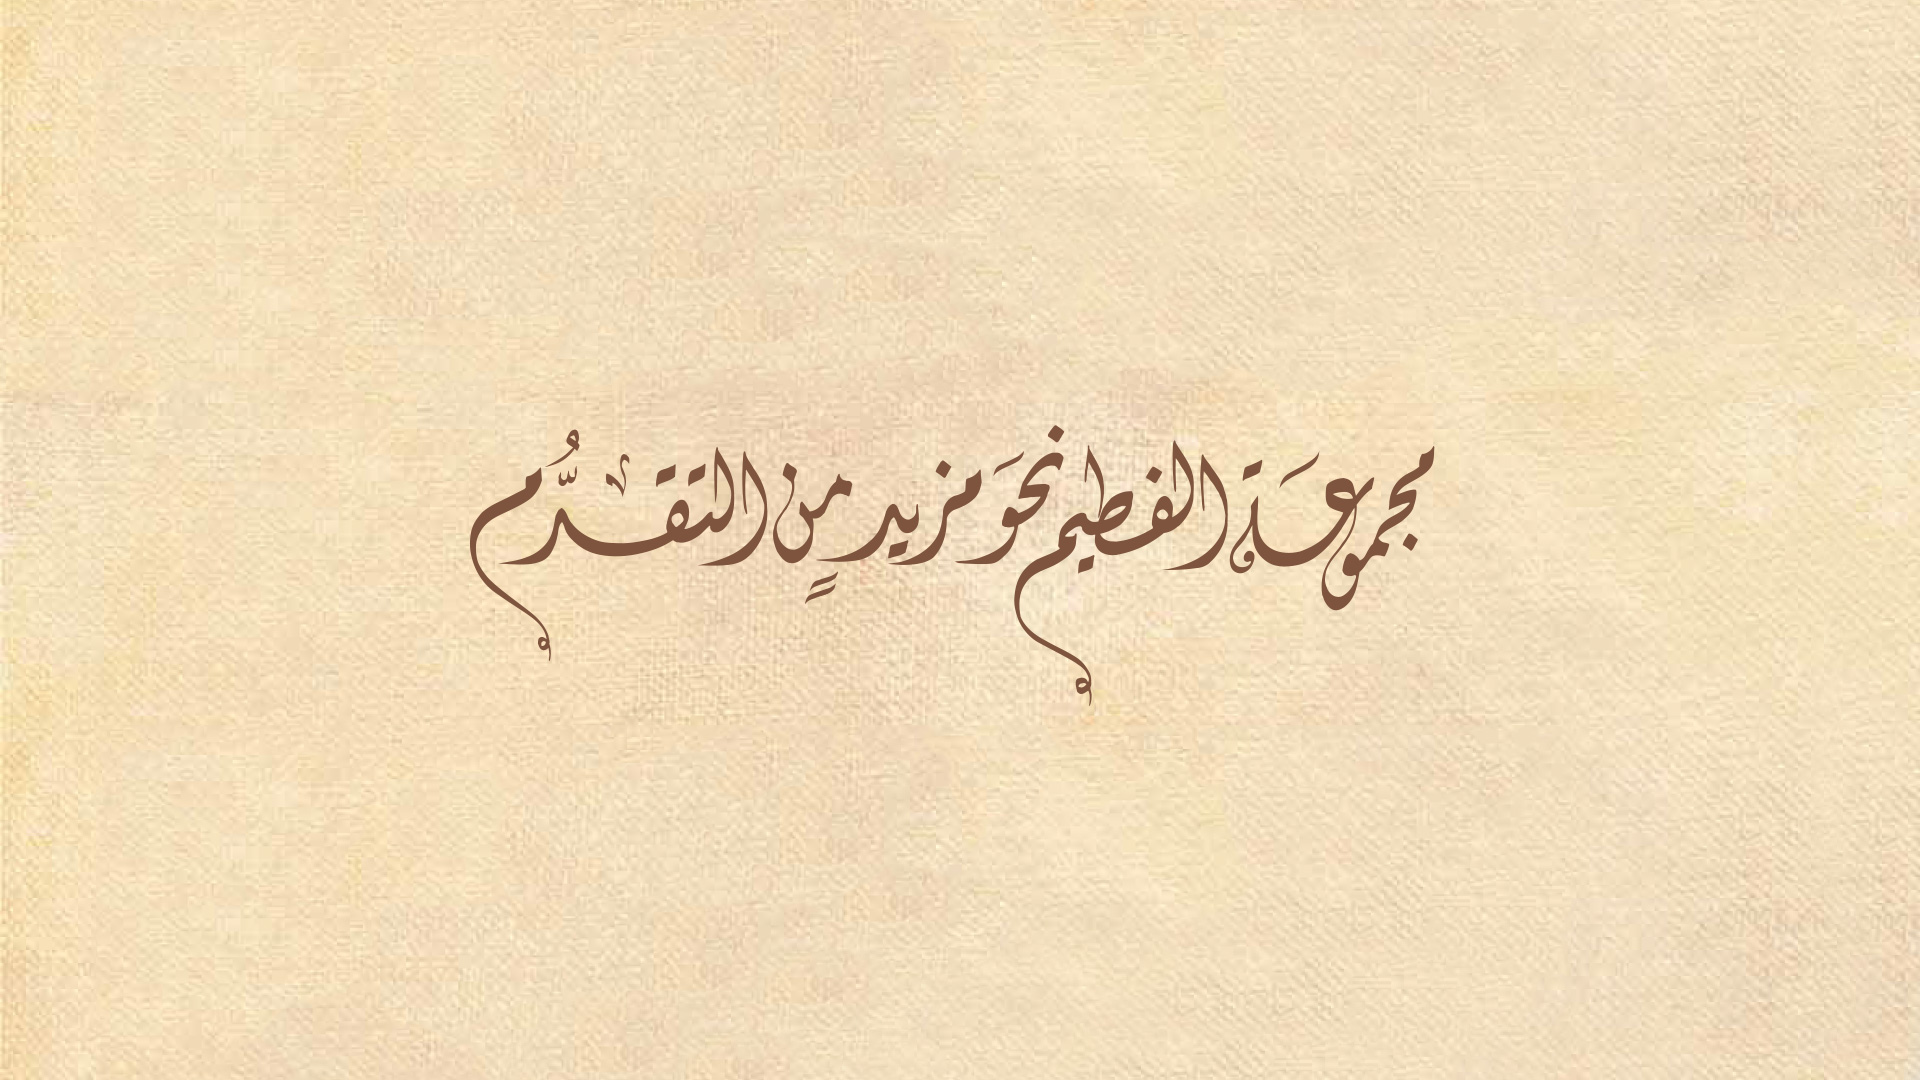 مجموعة الفطيم نحَو مزيدٍ من التقدُّم